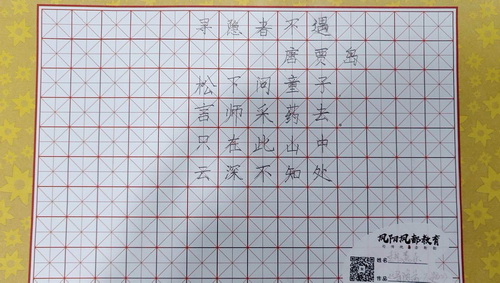 寻隐者不遇
唐贾岛
松下问童子
言师采药去
只在此山中
云深不知处
凤阳凤都教育
姓名
作品